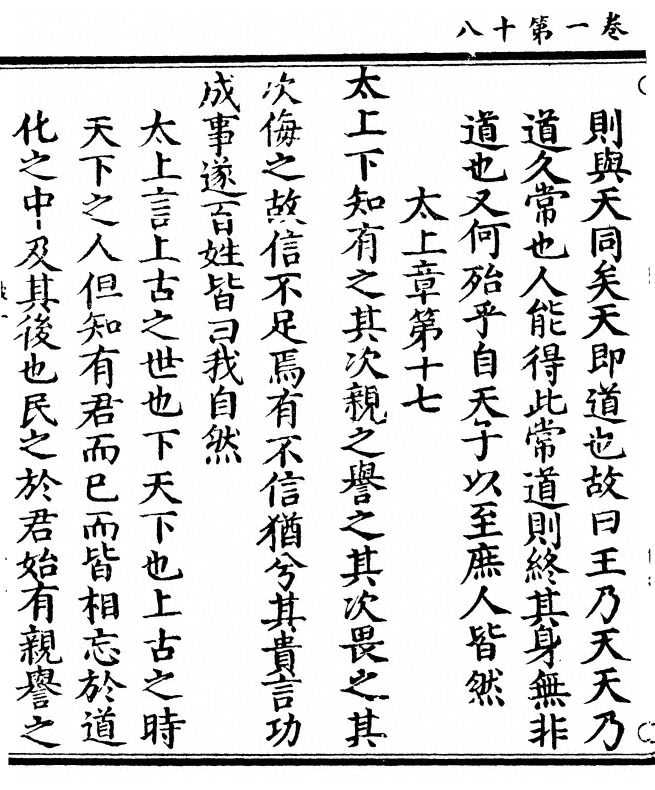 卷一第十八
則與天同矣天即道也故曰王乃天天乃
道久常也人能得此常道則終其身無非
道也又何殆乎自天子以至庶人皆然
太上章第十七
太上下知有之其次親之譽之其次畏之其
次侮之故信不足焉有不信猶兮其貴言功
成事遂百姓皆曰我自然
太上言上古之世也下天下也上古之時
天下之人但知有君而已而皆相忘於道
化之中及其後也民之於君始有親譽之